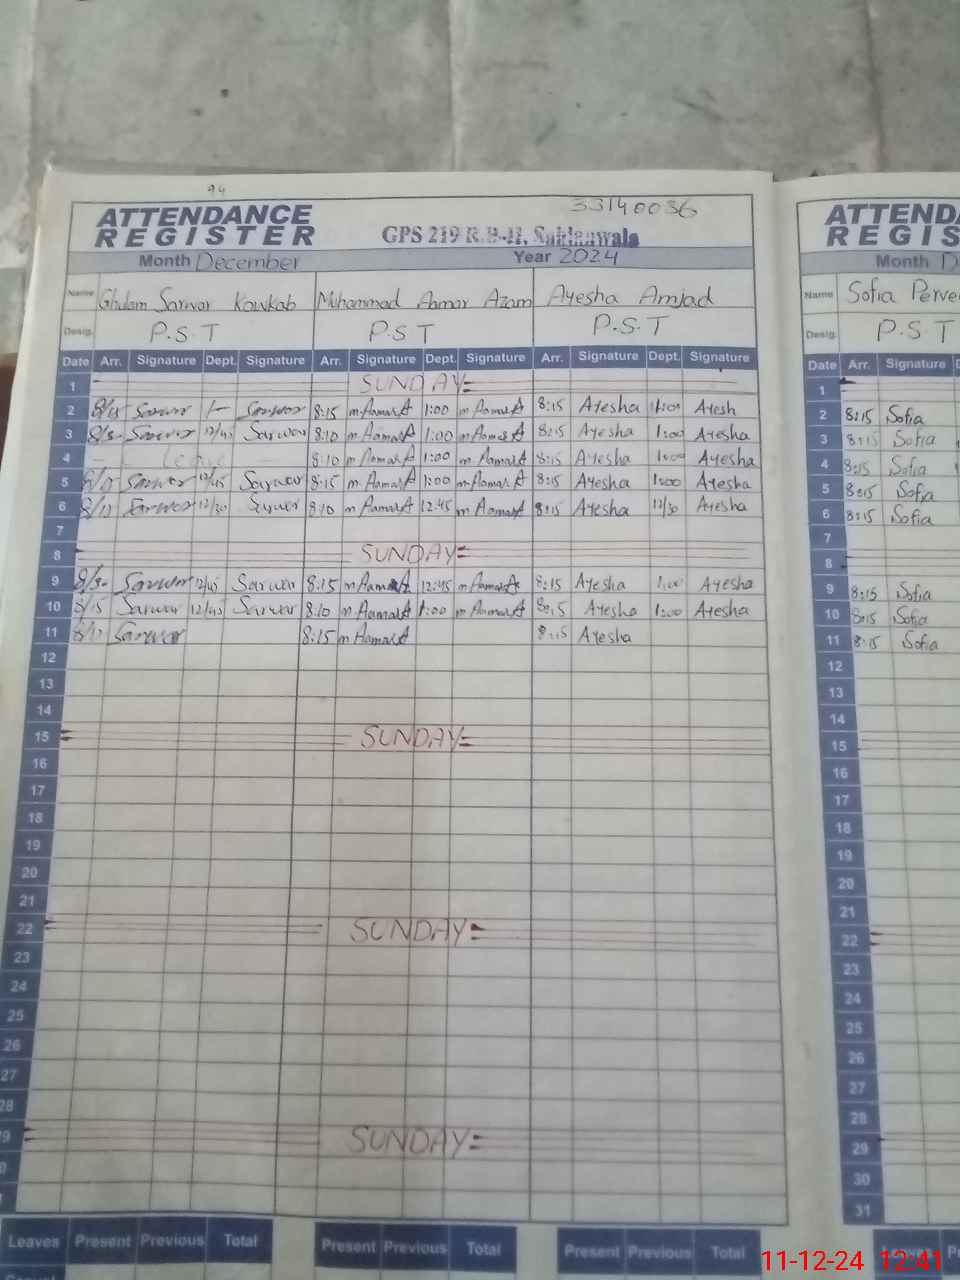 94
33140036
ATTENDANCE REGISTER
GPS 219 R.B-II,
Month December Year 2024
Name Ghulam Sarwar Kowkab Muhammad Aamar Azam Ayesha Amjad
Desig. P.S.T P.S.T P.S.T
Date Arr. Signature Dept. Signature Arr. Signature Dept. Signature Arr. Signature Dept. Signature
1 SUNDAY
2 8/15 Sarwar Sarwar 8:15 m AamarA 1:00 m AamarA 8:15 Ayesha 1:00 Ayesh
3 Sarwar 12/45 Sarwar 8:10 m AamarA 1:00 m AamarA 8:15 Ayesha 1:00 Ayesha
4 Leave 8:10 m AamarA 1:00 m AamarA 8:15 Ayesha 1:00 Ayesha
5 Sarwar 12/45 Sarwar 8:15 m AamarA 1:00 m AamarA 8:15 Ayesha 1:00 Ayesha
6 Sarwar 12/30 Sarwar 8:10 m AamarA 12:45 m AamarA 8:15 Ayesha 12/30 Ayesha
7
8 SUNDAY
9 Sarwar 12/45 Sarwar 8:15 m AamarA 12:45 m AamarA 8:15 Ayesha 1:00 Ayesha
10 8/15 Sarwar 12/45 Sarwar 8:10 m AamarA 1:00 m AamarA 8:15 Ayesha 1:00 Ayesha
11 Sarwar 8:15 m AamarA 8:15 Ayesha
12
13
14
15 SUNDAY
16
17
18
19
20
21
22 SUNDAY
23
24
25
26
27
28
29 SUNDAY
Leaves Present Previous Total Present Previous Total Present Previous Total
Month
Name Sofia
Desig. P.S.T
Date Arr. Signature
1
2 8:15 Sofia
3 8:15 Sofia
4 8:15 Sofia
5 8:15 Sofia
6 8:15 Sofia
7
8
9 8:15 Sofia
10 8:15 Sofia
11 8:15 Sofia
12
13
14
15
16
17
18
19
20
21
22
23
24
25
26
27
28
29
30
31
11-12-24 12:41